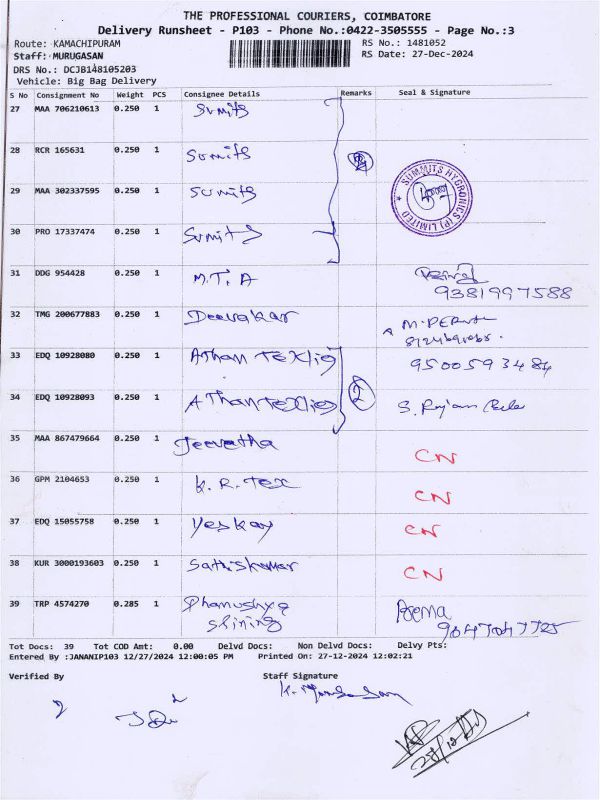 THE PROFESSIONAL COURIERS, COIMBATORE
Delivery Runsheet - P103 - Phone No.:0422-3505555 - Page No.:3
Route: KAMACHIPURAM RS No.: 1481052
Staff: MURUGASAN RS Date: 27-Dec-2024
DRS No.: DCJB148105203
Vehicle: Big Bag Delivery
S No Consignment No Weight PCS Consignee Details Remarks Seal & Signature
27 MAA 706210613 0.250 1 Sumits
28 RCR 165631 0.250 1 Sumits
29 MAA 302337595 0.250 1 Sumits
SUMMITS HYGRONICS (P) LIMITED
30 PRO 17337474 0.250 1 Sumits
31 DDG 954428 0.250 1 M.T.A
9381997588
32 TMG 200677883 0.250 1 Deevakar
33 EDQ 10928080 0.250 1 AThan Texlig 9500593484
34 EDQ 10928093 0.250 1 AThan Texlig 2
35 MAA 867479664 0.250 1 Jeevetha CN
36 GPM 2104653 0.250 1 K.R.Tex CN
37 EDQ 15055758 0.250 1 Yeskay CN
38 KUR 3000193603 0.250 1 Sathiskumar CN
39 TRP 4574270 0.285 1 Dhanushya Poorna
Shining
Tot Docs: 39 Tot COD Amt: 0.00 Delvd Docs: Non Delvd Docs: Delvy Pts:
Entered By :JANANIP103 12/27/2024 12:00:05 PM Printed On: 27-12-2024 12:02:21
Verified By Staff Signature